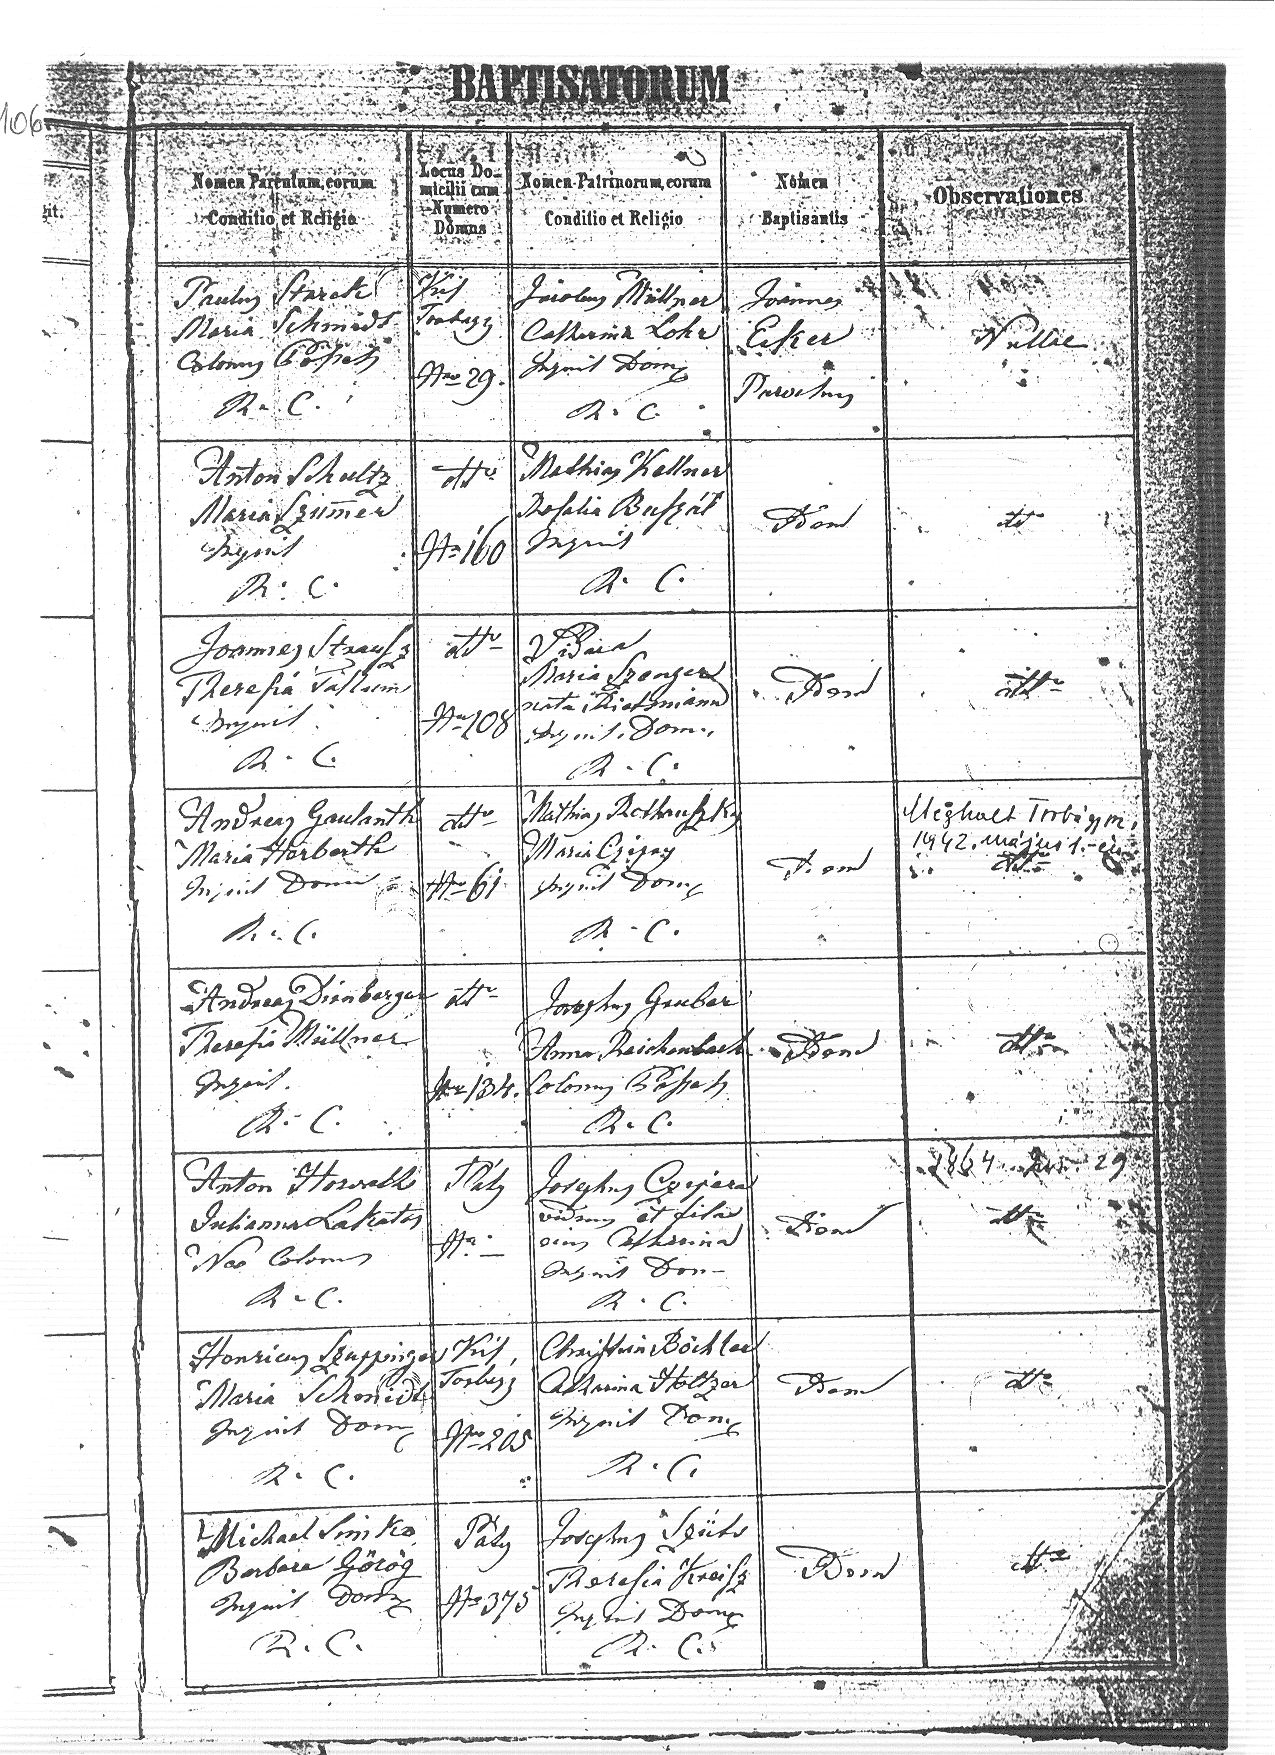 BAPTISATORUM
106
Nomen Parentum, eorum
Conditio et Religio
Locus Do-
micilii cum
Numero
Domus
Nomen Patrinorum, eorum
Conditio et Religio
Nomen
Baptisantis
Observationes
Paulus Starck
Maria Schmidt
Colonus
R. C.
Kis
Torbágy
Nro 29.
Jacobus Müllner
Catharina Lohr
Inquil Dom
R. C.
Joannes
Parochus
Nullae
Anton Schultz
Maria
Inquil
R. C.
dtto
Nro 160
Mathias Kellner
Rosalia
Inquil
R. C.
Idem
dtto
Joannes Strausz
Theresia
Inquil.
R. C.
dtto
Nro 108
Vidua
Maria Szanger
nata
Inquil. Dom.
R. C.
Idem
dtto
Andreas Gaulanth
Maria Horberth
Inquil Dom
R. C.
dtto
Nro 61
Mathias
Maria
Inquil Dom
R. C.
Idem
Meghalt Torbágyon,
1942. május 1.-én
dtto
Andreas Dienberger
Theresia Müllner
Inquil.
R. C.
dtto
Nro 134.
Josephus Gruber
Anna Reichenbach
Colonus
R. C.
Idem
dtto
Anton Horvath
Julianna Lakatos
Neo Colonus
R. C.
Páty
Nro —
Josephus
viduus et filia
ejus Catharina
Inquil Dom
R. C.
Idem
1864 29
dtto
Henricus Szuppinger
Maria Schmidt
Inquil Dom
R. C.
Kis
Torbágy
Nro 205
Christian Böchler
Catharina Holtzer
Inquil Dom
R. C.
Idem
dtto
Michael Sinko
Barbara Görög
Inquil Dom
R. C.
Páty
Nro 375
Josephus Szüts
Theresia Kreisz
Inquil Dom
R. C.
Idem
dtto